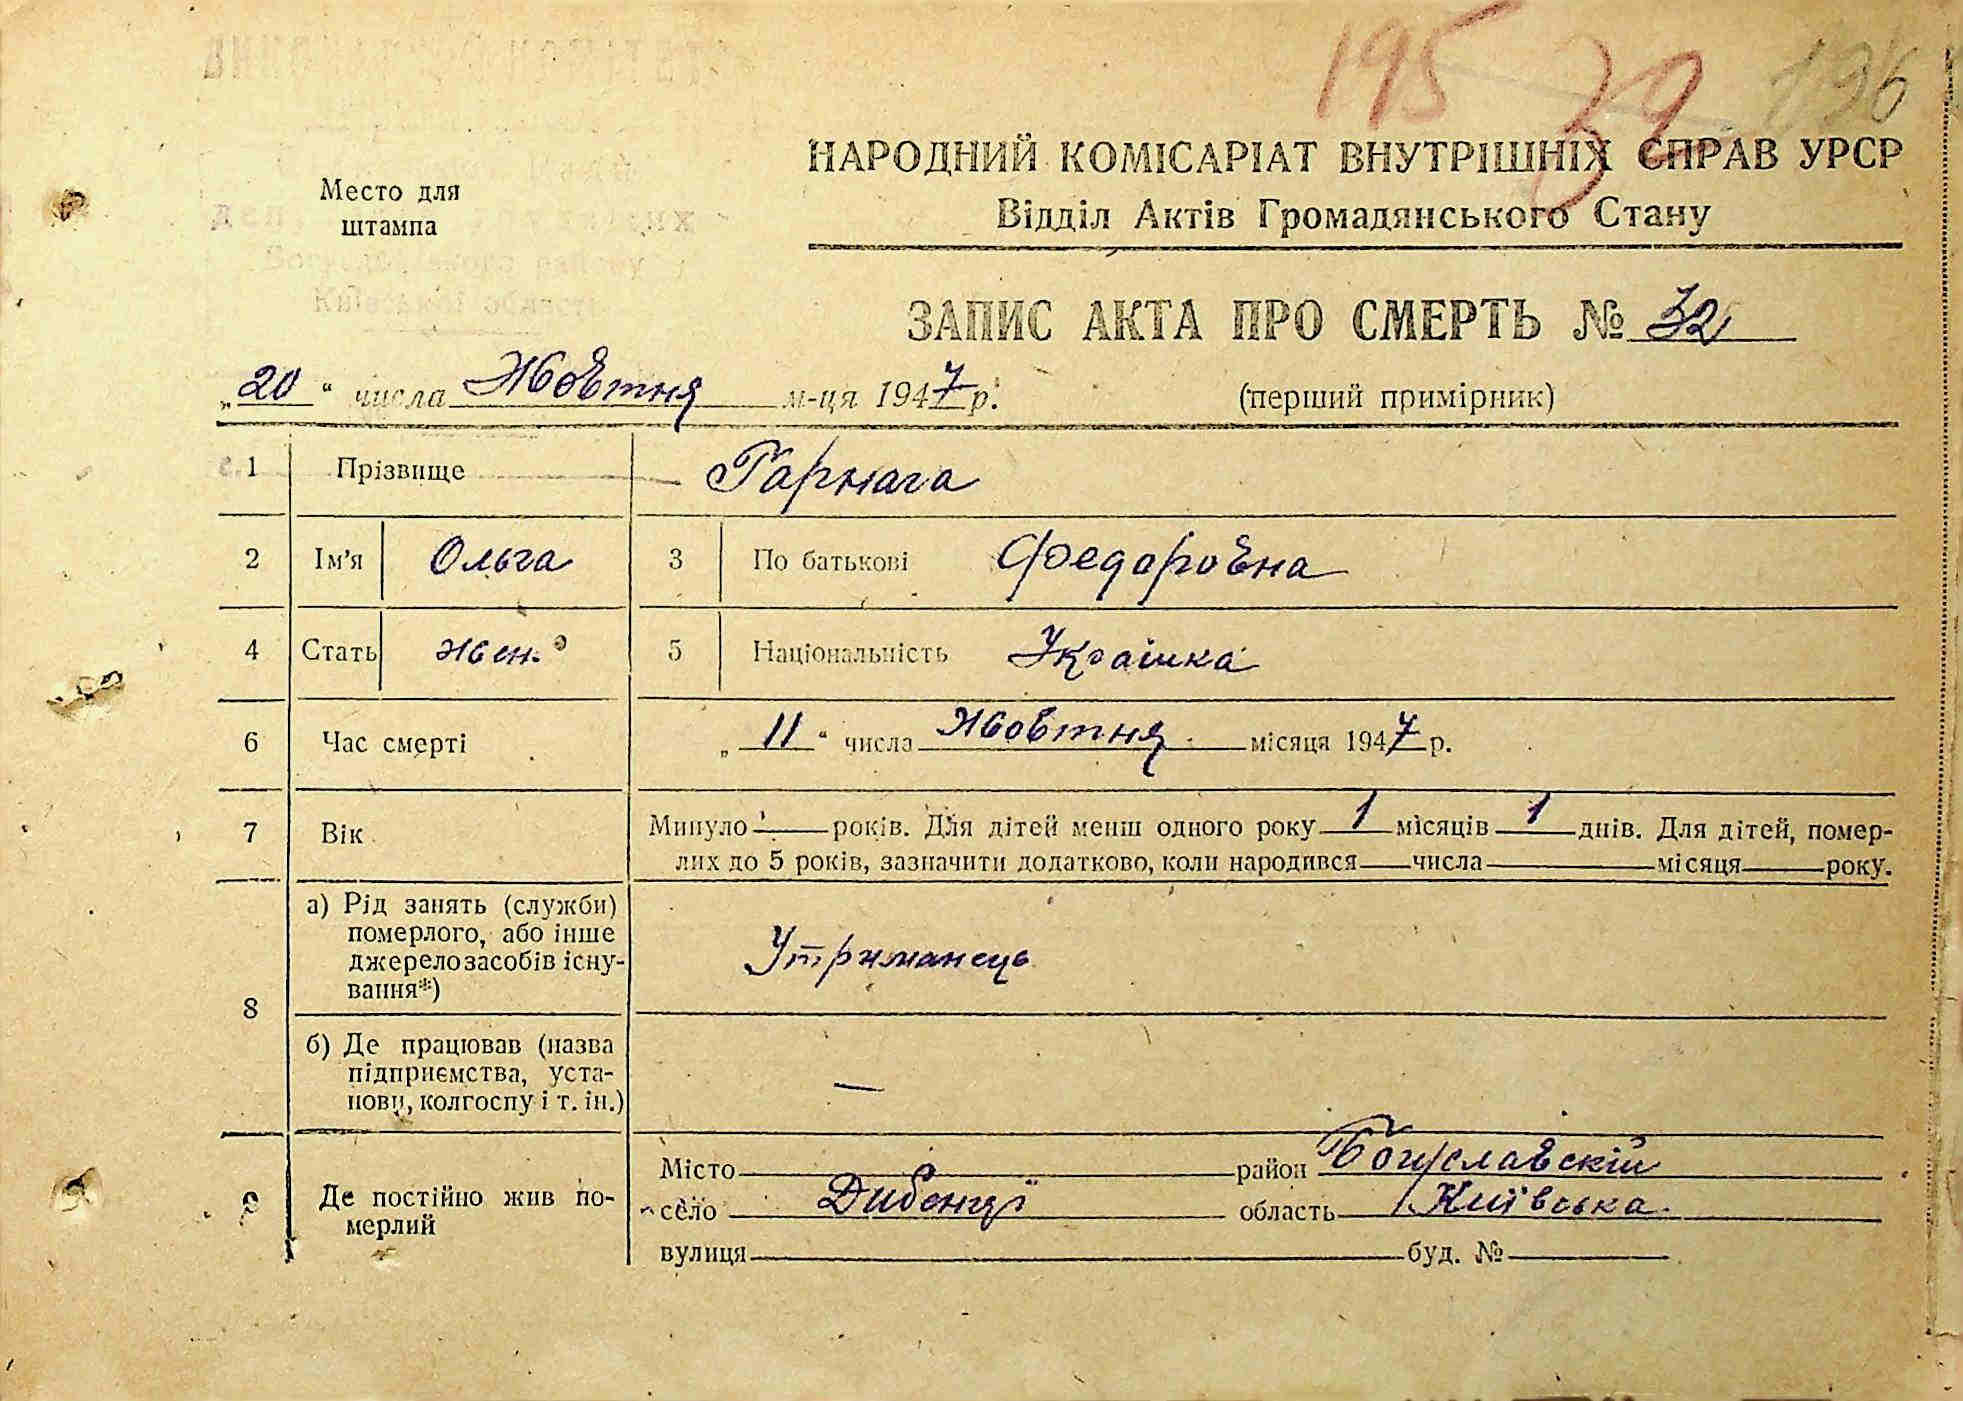 195 32 196
НАРОДНИЙ КОМІСАРІАТ ВНУТРІШНІХ СПРАВ УРСР
Место для
штампа
Відділ Актів Громадянського Стану
ЗАПИС АКТА ПРО СМЕРТЬ № 32
„20“ числа Жовтня м-ця 1947 р. (перший примірник)
1 Прізвище Гарнага
2 Ім'я Ольга 3 По батькові Федоровна
4 Стать жен. 5 Національність Українка
6 Час смерті „11“ числа Жовтня місяця 1947 р.
7 Вік Минуло — років. Для дітей менш одного року 1 місяців 1 днів. Для дітей, помер-
лих до 5 років, зазначити додатково, коли народився числа місяця року.
8 а) Рід занять (служби)
померлого, або інше
джерело засобів існу-
вання*)
Утриманець
б) Де працював (назва
підприємства, уста-
нови, колгоспу і т. ін.)
—
9 Де постійно жив по-
мерлий
Місто район Богуславскій
село Дибенці область Київська
вулиця буд. №